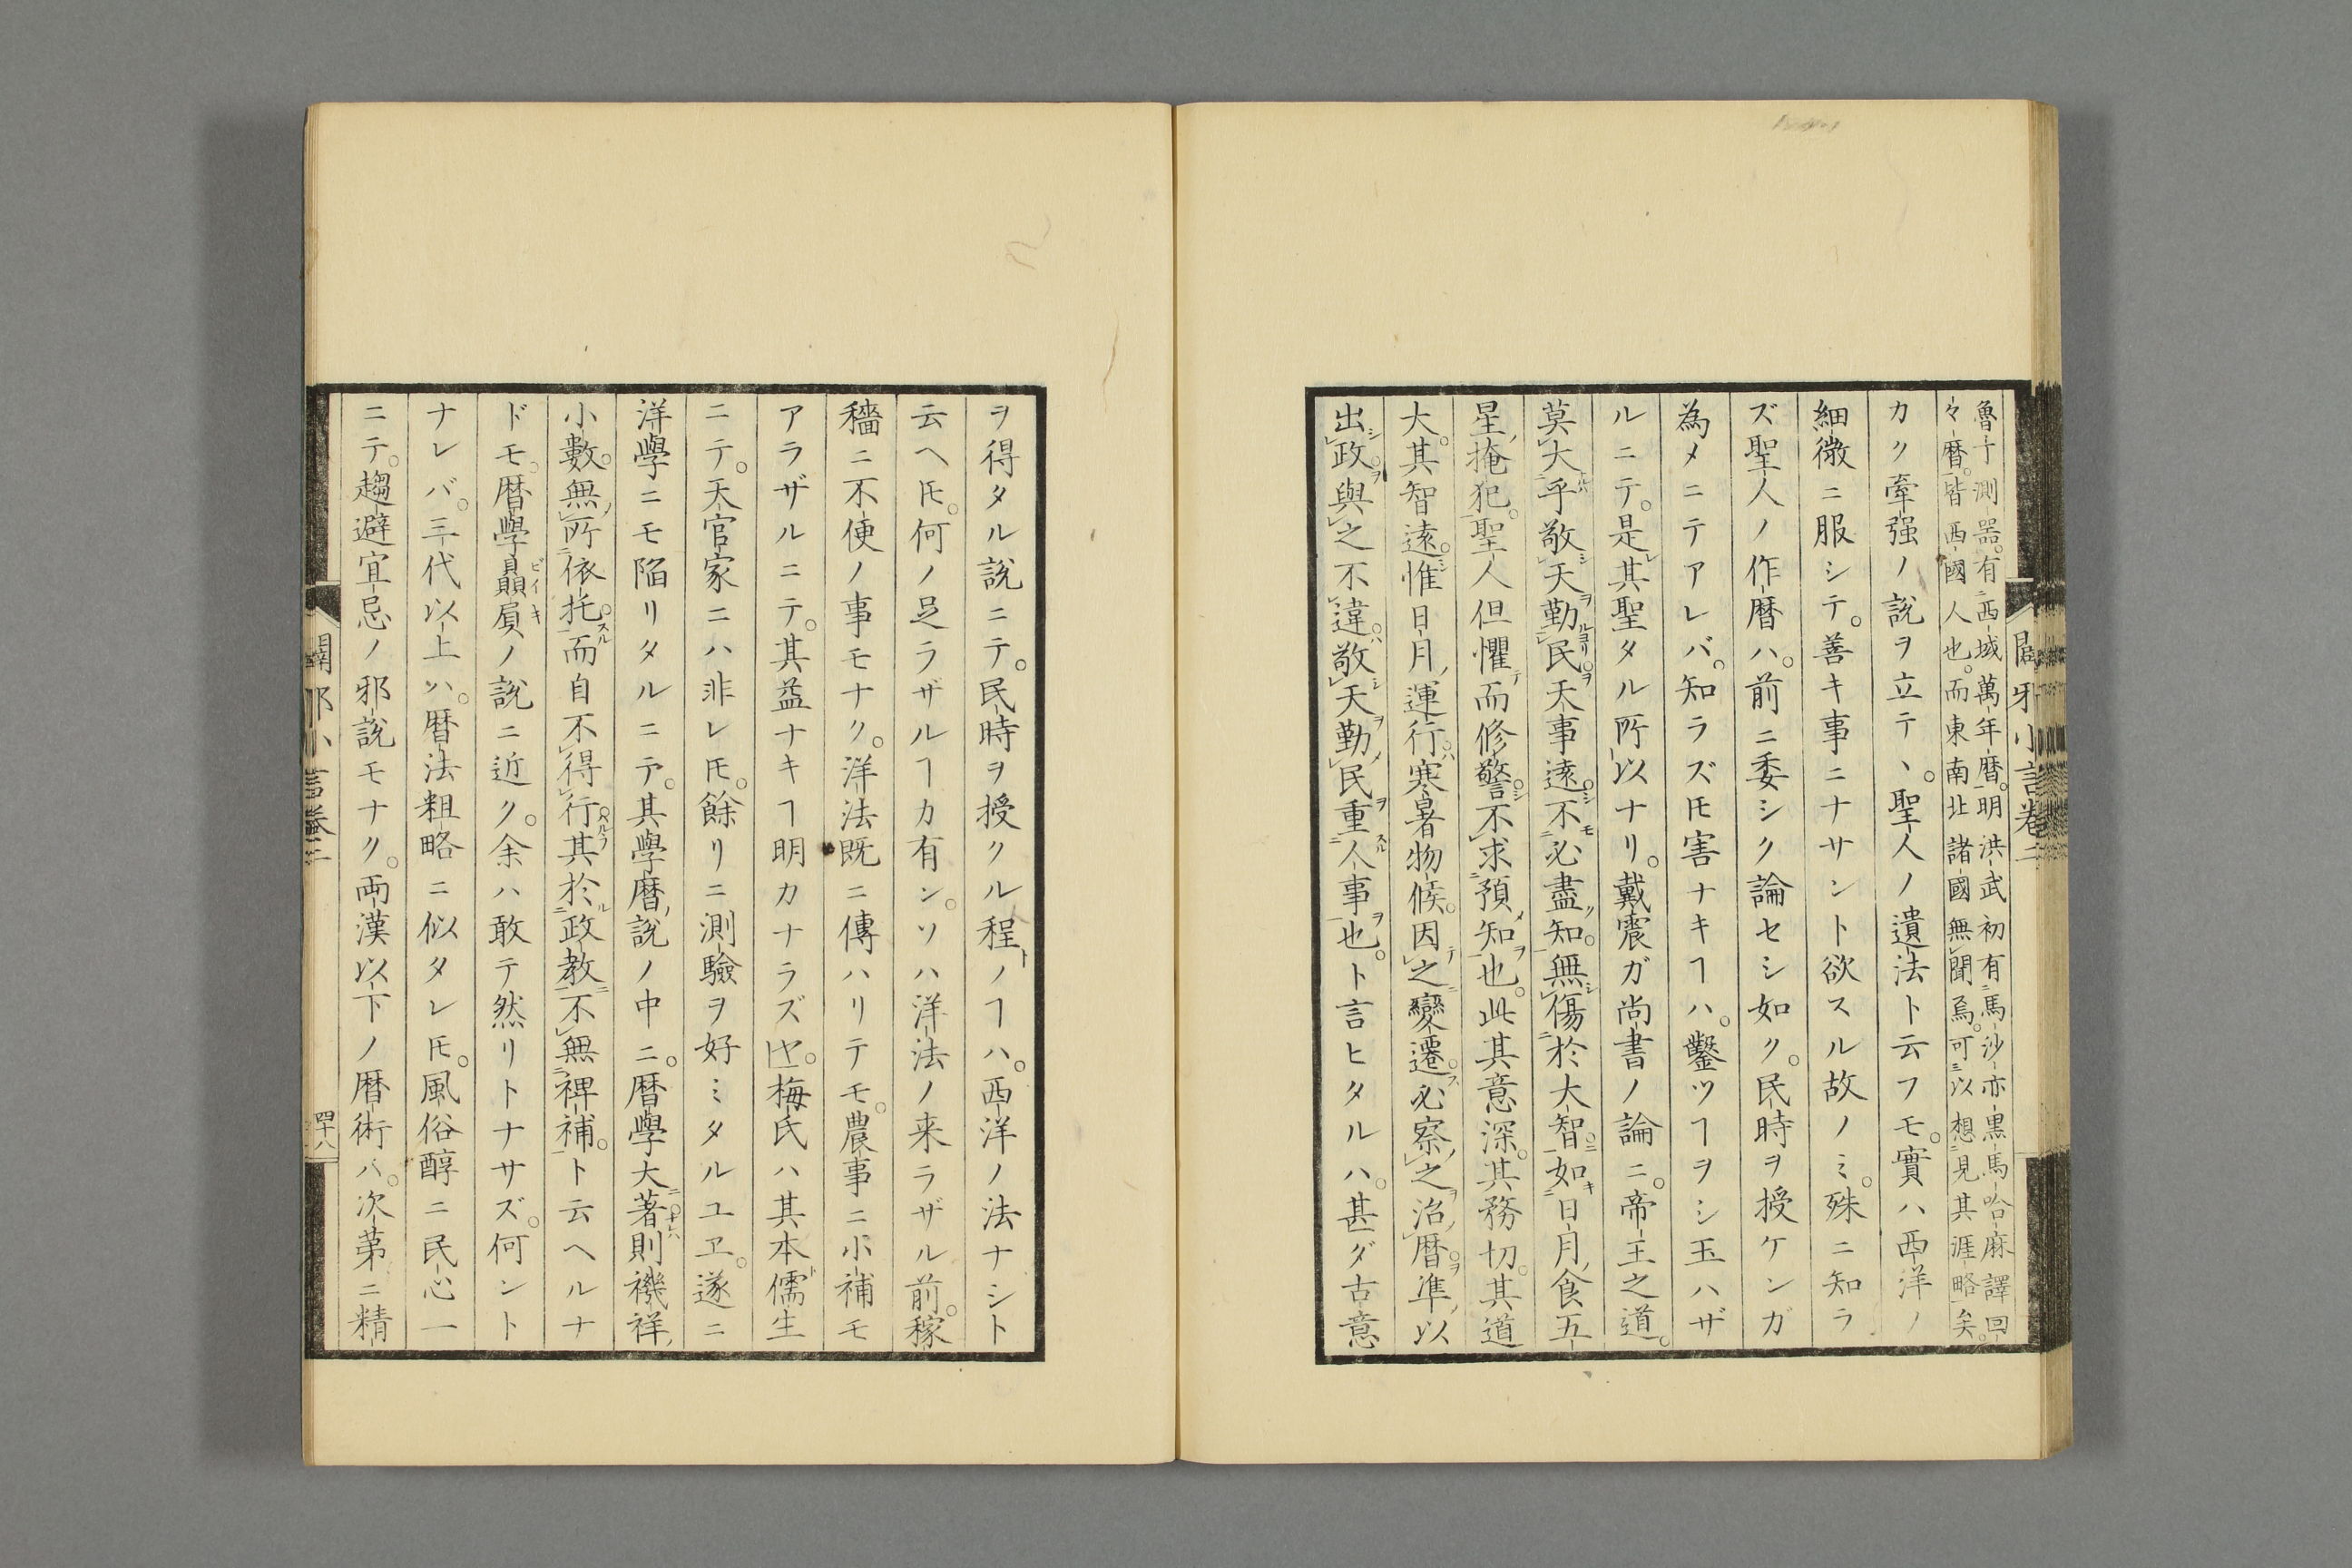 魯干測器。有西域萬年暦。明洪武初有馬沙亦黒馬哈麻譯回
々暦。皆西國人也。而東南北諸國無聞焉。可以想見其涯略矣。
カク牽强ノ說ヲ立テヽ。聖人ノ遺法ト云フモ。實ハ西洋ノ
細微ニ服シテ。善キ事ニナサント欲スル故ノミ。殊ニ知ラ
ズ聖人ノ作暦ハ。前ニ委シク論セシ如ク。民時ヲ授ケンガ
為メニテアレバ。知ラズ𪜈害ナキヿハ。鑿ツヿヲシ玉ハザ
ルニテ。是レ其聖タル所以ナリ。戴震ガ尚書ノ論ニ。帝王之道。
莫大乎敬天勤民。天事遠。不必盡知。無傷於大智。如日月食五
星掩犯。聖人但懼而修警。不求預知也。此其意深。其務切。其道
大。其智遠。惟日月運行。寒暑物候。因之變遷。必察之治暦準以
出政。與之不違。敬天勤民重人事也。ト言ヒタルハ。甚ダ古意
ヲ得タル說ニテ。民時ヲ授クル程ノヿハ。西洋ノ法ナシト
云ヘ𪜈。何ノ足ラザルヿカ有ン。ソハ洋法ノ来ラザル前。稼
穡ニ不便ノ事モナク。洋法既ニ傳ハリテモ。農事ニ小補モ
アラザルニテ。其益ナキヿ明カナラズヤ。梅氏ハ其本儒生
ニテ。天官家ニハ非レ𪜈。餘リニ測驗ヲ好ミタルユヱ。遂ニ
洋學ニモ陷リタルニテ。其學暦說ノ中ニ。暦學大著則禨祥
小數。無所依托。而自不得行。其於政教。不無裨補。ト云ヘルナ
ドモ。暦學贔屓ビイキノ說ニ近ク。余ハ敢テ然リトナサズ。何ント
ナレバ。三代以上ハ。暦法粗略ニ似タレ𪜈。風俗醇ニ民心一
ニテ。趨避宜忌ノ邪說モナク。兩漢以下ノ暦術ハ。次第ニ精
闢邪小言卷二
四十八